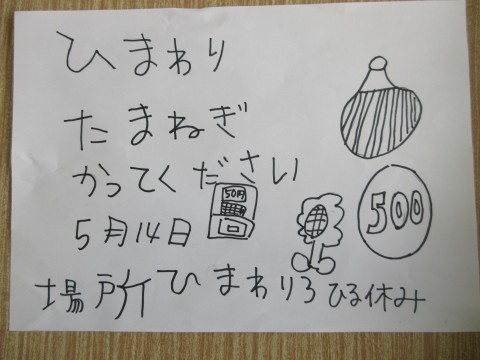 ひまわり
たまねぎ
かってください
50円
500
5月14日
場所ひまわり3 ひる休み